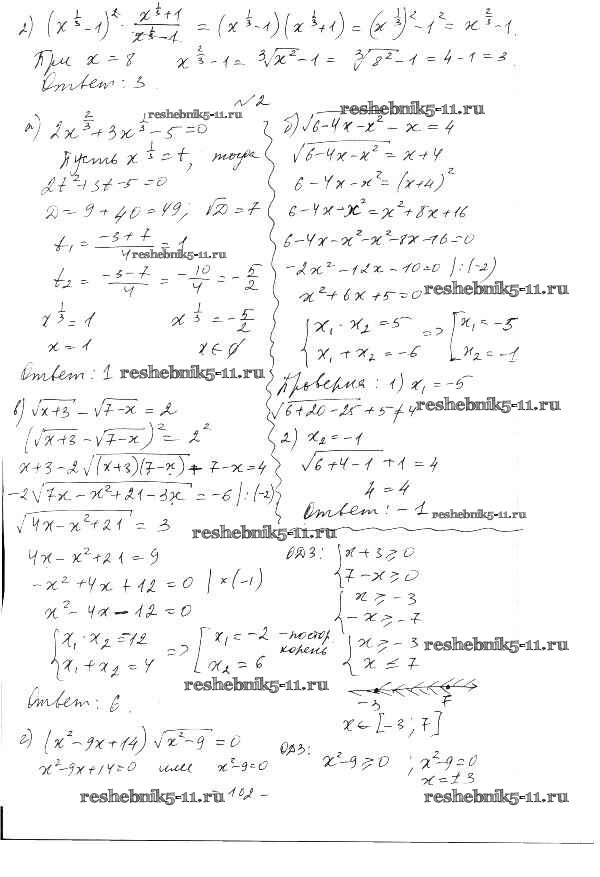 2) (x^{1/3} - 1)^2 · \frac{x^{1/3}+1}{x^{1/3}-1} = (x^{1/3} - 1)(x^{1/3}+1) = (x^{1/3})^2 - 1^2 = x^{2/3} - 1.
При x = 8 x^{2/3} - 1 = ∛x² - 1 = ∛8² - 1 = 4 - 1 = 3.
Ответ: 3.
№2
reshebnik5-11.ru
reshebnik5-11.ru
а) 2x^{2/3} + 3x^{1/3} - 5 = 0
Пусть x^{1/3} = t, тогда
2t² + 3t - 5 = 0
D = 9 + 40 = 49; √D = 7
t₁ = \frac{-3+7}{4} = 1
reshebnik5-11.ru
t₂ = \frac{-3-7}{4} = -\frac{10}{4} = -\frac{5}{2}
x^{1/3} = 1 x^{1/3} = -\frac{5}{2}
x = 1 x ∈ ∅
Ответ: 1 reshebnik5-11.ru
б) √(6-4x-x²) - x = 4
√(6-4x-x²) = x + 4
6 - 4x - x² = (x+4)²
6 - 4x - x² = x² + 8x + 16
6 - 4x - x² - x² - 8x - 16 = 0
-2x² - 12x - 10 = 0 |:(-2)
reshebnik5-11.ru
x² + 6x + 5 = 0
{ x₁ · x₂ = 5 => [ x₁ = -5
x₁ + x₂ = -6 x₂ = -1
Проверка: 1) x₁ = -5
√(6+20-25) + 5 ≠ 4
reshebnik5-11.ru
2) x₂ = -1
√(6+4-1) + 1 = 4
4 = 4
Ответ: -1 reshebnik5-11.ru
в) √(x+3) - √(7-x) = 2
(√(x+3) - √(7-x))² = 2²
x+3 - 2√((x+3)(7-x)) + 7 - x = 4
-2√(7x - x² + 21 - 3x) = -6 |:(-2)
√(4x - x² + 21) = 3
reshebnik5-11.ru
4x - x² + 21 = 9
-x² + 4x + 12 = 0 | ×(-1)
x² - 4x - 12 = 0
{ x₁ · x₂ = 12 => [ x₁ = -2 - постор. корень
x₁ + x₂ = 4 x₂ = 6
reshebnik5-11.ru
Ответ: 6.
ОДЗ: { x + 3 ≥ 0
7 - x ≥ 0
{ x ≥ -3
-x ≥ -7
{ x ≥ -3
x ≤ 7
reshebnik5-11.ru
-3 7
x ∈ [-3; 7]
г) (x² - 9x + 14) √(x² - 9) = 0
x² - 9x + 14 = 0 или x² - 9 = 0
ОДЗ: x² - 9 ≥ 0 ; x² - 9 = 0
x = ±3
reshebnik5-11.ru
- 102 -
reshebnik5-11.ru